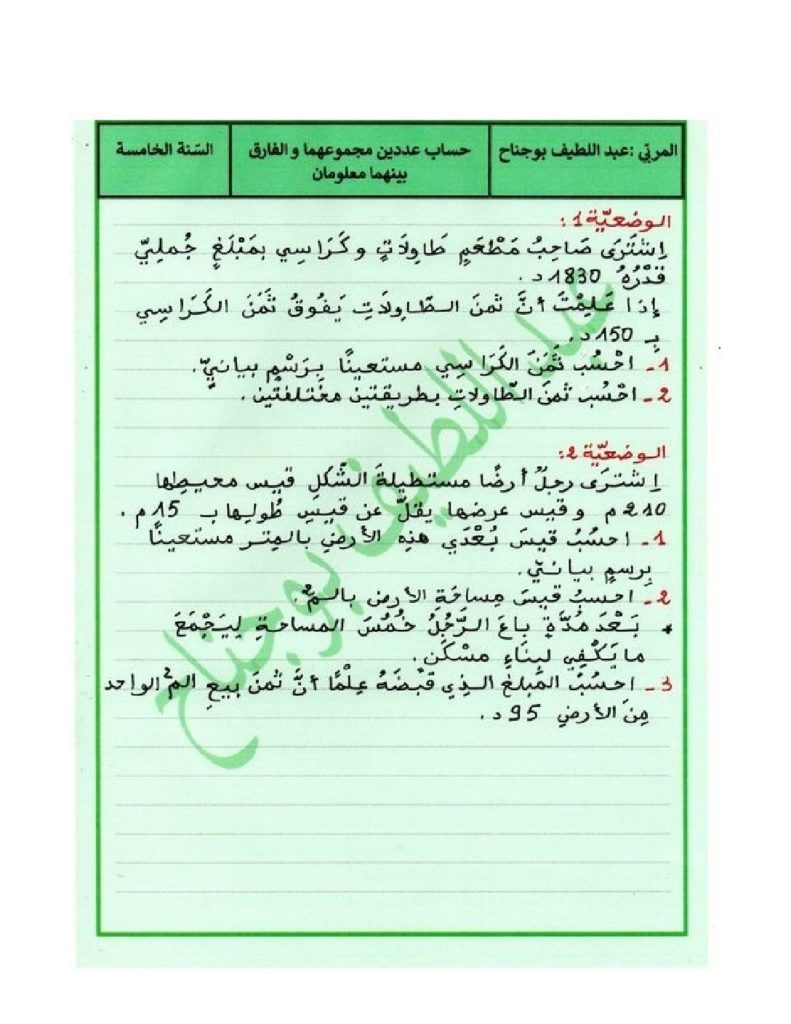 المربّي :عبد اللطيف بوجناح
حساب عددين مجموعهما و الفارق
بينهما معلومان
السّنة الخامسة
الوضعيّة 1:
اِشْتَرَى صَاحِبُ مَطْعَمٍ طَاولَاتٍ و كَرَاسِي بِمَبْلَغٍ جُمليّ
قَدْرُهُ 1830د.
إِذَا عَلِمْتَ أَنَّ ثمنَ الطّاولَاتِ يَفُوقُ ثَمَنَ الكَرَاسِي
بِـ 150د.
1- احْسُبْ ثَمَنَ الكَرَاسِي مستعينًا بِرَسْمٍ بيانيّ.
2- احْسُبْ ثمنَ الطّاولاتِ بطريقتين مختلفتين.
الوضعيّة 2:
اِشترَى رجلٌ أرضًا مستطيلةَ الشّكلِ قيس محيطها
210م و قيس عرضها يقلّ عن قيس طُولها بـ 15م.
1- احسُبْ قيسَ بُعْدَي هذِهِ الأرضِ بالمِترِ مستعينًا
بِرسمٍ بيانيّ.
2- احسبْ قيسَ مِساحَةِ الأرضِ بالم².
* بَعْدَ مُدَّةٍ باعَ الرَّجُلُ خُمُسَ المساحةِ لِيَجْمَعَ
ما يَكْفِي لِبِنَاءِ مسْكَن.
3- احسُبْ المَبلغَ الذِي قبَضَهُ عِلْمًا أنَّ ثمنَ بيعِ الم² الواحد
مِنَ الأرضِ 95د.
عبد اللطيف بوجناح